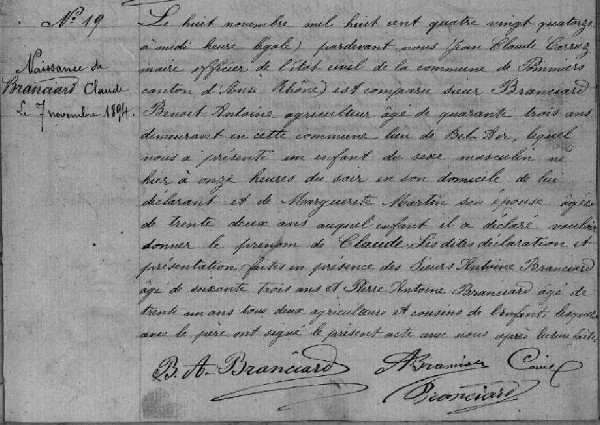 N° 19
Naissance de
Branciard Claude
Le 7 novembre 1894.
Le huit novembre mil huit cent quatre vingt quatorze
à midi (heure légale) pardevant nous Jean Claude
maire officier de l'état civil de la commune de Pommiers
canton d'Anse (Rhône) est comparu sieur Branciard
Benoit Antoine agriculteur âgé de quarante trois ans
demeurant en cette commune lieu de Bel-Air, lequel
nous a présenté un enfant du sexe masculin né
hier à onze heures du soir en son domicile, de lui
déclarant et de Marguerite Martin son épouse âgée
de trente deux ans auquel enfant il a déclaré vouloir
donner le prénom de Claude. Les dites déclaration et
présentation faites en présence des sieurs Antoine Branciard
âgé de soixante trois ans et Pierre Antoine Branciard âgé de
trente un ans tous deux agriculteurs et cousins de l'enfant lesquels
avec le père ont signé le présent acte avec nous après lecture faite.
B. A. Branciard
A Branciard
Branciard